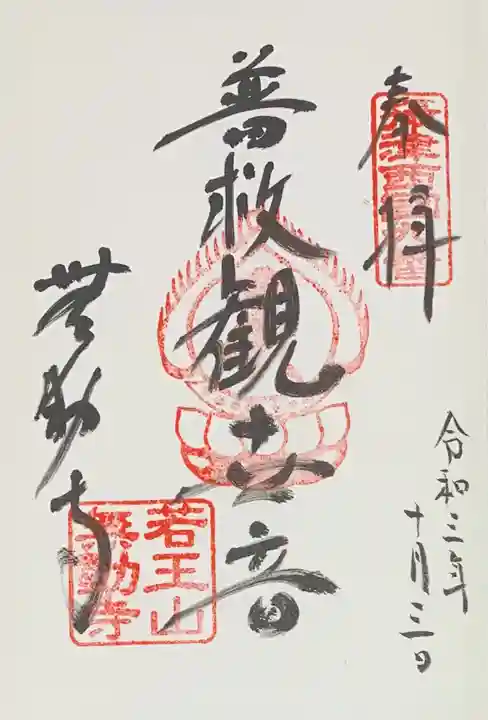 奉拝
普救観世音
無動寺
若王山
無動寺
令和三年
十月三日